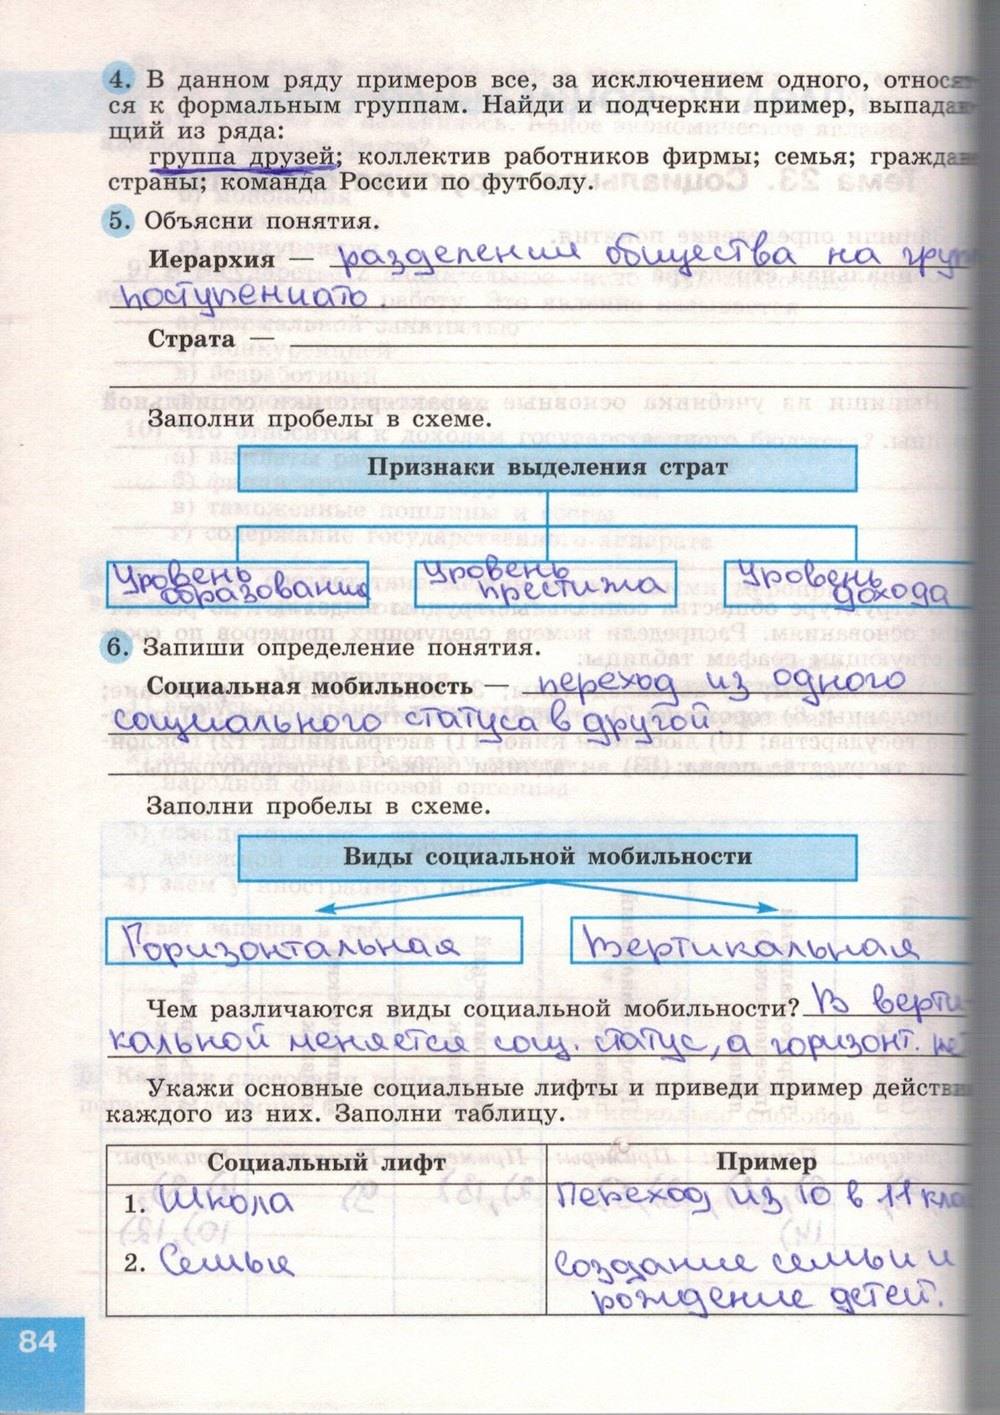 4. В данном ряду примеров все, за исключением одного, относят-
ся к формальным группам. Найди и подчеркни пример, выпадаю-
щий из ряда:
группа друзей; коллектив работников фирмы; семья; граждане
страны; команда России по футболу.
5. Объясни понятия.
Иерархия — разделении общества на
поступениато
Страта —
Заполни пробелы в схеме.
Признаки выделения страт
Уровень образования
Уровень престижа
Уровень дохода
6. Запиши определение понятия.
Социальная мобильность — переход из одного
социального статуса в другой.
Заполни пробелы в схеме.
Виды социальной мобильности
Горизонтальная Вертикальная
Чем различаются виды социальной мобильности? В верти-
кальной меняется соц. статус, а горизонт. нет
Укажи основные социальные лифты и приведи пример действи
каждого из них. Заполни таблицу.
Социальный лифт Пример
1. Школа Переход из 10 в 11 клас
2. Семья создание семьи и
рождение детей.
84